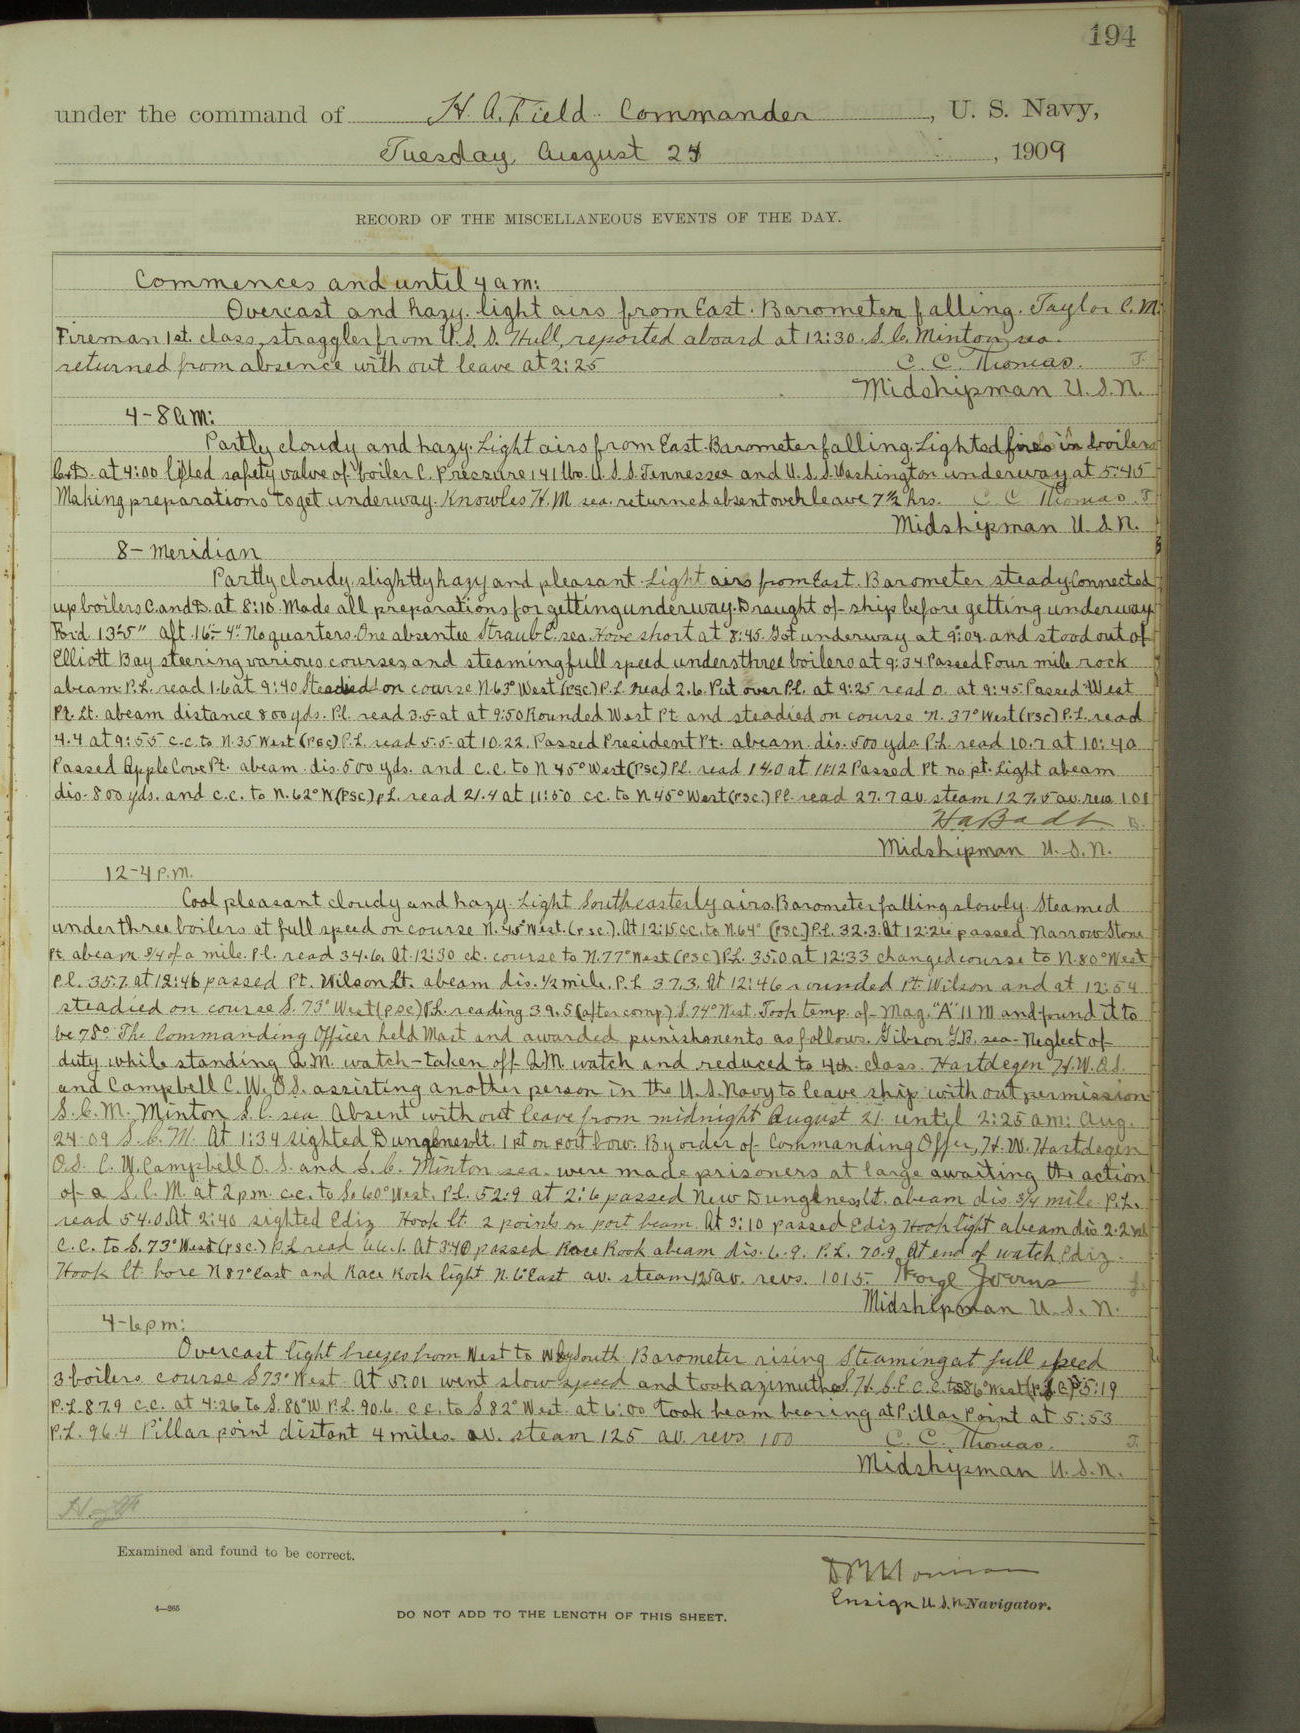 194
under the command of H. A. Field. Commander, U. S. Navy,
Tuesday, August 24, 1909
RECORD OF THE MISCELLANEOUS EVENTS OF THE DAY.
Commences and until 4 am:
Overcast and hazy. light airs from East. Barometer falling. Taylor C. M.
Fireman 1st. class, straggler from U.S.S. Hull, reported aboard at 12:30. S. C. Minton, sea.
returned from absence with out leave at 2:25 C. C. Thomas. T.
Midshipman U.S.N.
4-8 a m:
Partly cloudy and hazy. Light airs from East. Barometer falling. Lighted fires in boilers
C&D. at 4:00 lifted safety valve of boiler C. Pressure 141 lbs. U.S.S. Tennessee and U.S.S. Washington underway at 5:45
Making preparations to get underway. Knowles H. M sea. returned absent over leave 7½ hrs. C. C Thomas. T
Midshipman U.S.N.
8- Meridian
Partly cloudy, slightly hazy and pleasant. Light airs from East. Barometer steady. Connected
up boilers C. and D. at 8:10. Made all preparations for getting underway. Draught of ship before getting underway
For'd 13'-5" aft. 16'-4". No quarters. One absentee Straub E. sea. Hove short at 8:45. Got underway at 9:04. and stood out of
Elliott Bay steering various courses, and steaming full speed under three boilers at 9:34 Passed Four mile rock
abeam. P.L. read 1.6 at 9:40 Steadied on course N. 63° West (psc) P.L. read 2.6. Put over P.L. at 9:25 read 0. at 9:45 Passed West
Pt. Lt. abeam distance 800 yds. P.L. read 3.5 at at 9:50 Rounded West Pt. and steadied on course N. 37° West (psc) P.L. read
4.4 at 9:55 c.c. to N. 35 West (psc) P.L. read 5.5 at 10.22. Passed President Pt. abeam. dis. 500 yds. P.L. read 10.7 at 10:40
Passed Apple Cove Pt. abeam. dis. 500 yds. and c.c. to N 45° West (PSC) P.L. read 14.0 at 11:12 Passed Pt no pt. Light abeam
dis. 800 yds. and c.c. to N. 62° W (PSC) P.L. read 21.4 at 11:50 c.c. to N 45° West (PSC.) P.L. read 27.7 av. steam 127.5 av. revs. 101
H A Badt B.
Midshipman U.S.N.
12-4 P.M.
Cool pleasant cloudy and hazy. Light Southeasterly airs. Barometer falling slowly. Steamed
under three boilers at full speed on course N. 45° West. (psc). At 12:15 c.c. to N. 64° (PSC) P.L. 32.3. At 12:26 passed Narrow Stone
Pt. abeam ¾ of a mile. P.L. read 34.6. At 12:30 ch. course to N. 77° West (PSC) P.L. 35.0 at 12:33 changed course to N. 80° West
P.L. 35.7. at 12:46 passed Pt. Wilson Lt. abeam dis. ½ mile. P.L. 37.3. At 12:46 rounded Pt. Wilson and at 12:54
steadied on course S. 73° West (PSC) P.L. reading 39.5 (after comp.) S. 74° West. Took temp. of Mag. "A" 11 M and found it to
be 78°. The Commanding Officer held Mast and awarded punishments as follows. Gibson G.B. sea- Neglect of
duty while standing Q.M. watch- taken off Q.M. watch and reduced to 4th class. Hartdegen H.W. O.S.
and Campbell C. W. O.S. assisting another person in the U.S. Navy to leave ship with out permission
S.C.M. Minton S. C. sea. Absent with out leave from midnight August 21 until 2:25 am: Aug.
24-09 S.C.M. At 1:34 sighted Dungeness lt. 1 pt on port bow. By order of Commanding Offier, H. W. Hartdegen
O.S. C. W. Campbell O.S. and S. C. Minton sea. were made prisoners at large awaiting the action
of a S.C.M. at 2 p.m. c.c. to S. 60° West. P.L. 52.9 at 2:16 passed New Dungeness Lt. abeam dis. ¾ mile P.L.
read 54.0. At 2:40 sighted Ediz Hook lt. 2 points on port beam. At 3:10 passed Ediz Hook light abeam dis 2.2 mi.
C.C. to S. 73° West (PSC.) P.L read 66.1. At 3:40 passed Race Rook abeam dis. 6.9. P.L. 70.9. At end of watch Ediz.
Hook lt. bore N 87° East and Race Rock light N. 6° East av. steam 125 av. revs. 101.5.
Midshipman U.S.N.
4-6 pm:
Overcast light breezes from West to W by South Barometer rising Steaming at full speed
3 boilers course S 73° West. At 5:01 went slow speed and took azimuths S.H.C.E. C.C. to S 86° West (P.S.C.) 5:19
P.L. 87.9 c.c. at 4:26 to S. 80° W. P.L. 90.6. c.c. to S 82° West. at 6:00 took beam bearing at Pillar Point at 5:53
P.L. 96.4 Pillar point distant 4 miles. av. steam 125 av. revs. 100 C. C. Thomas. T.
Midshipman U.S.N.
Examined and found to be correct.
Ensign U.S.N. Navigator.
4—265
DO NOT ADD TO THE LENGTH OF THIS SHEET.